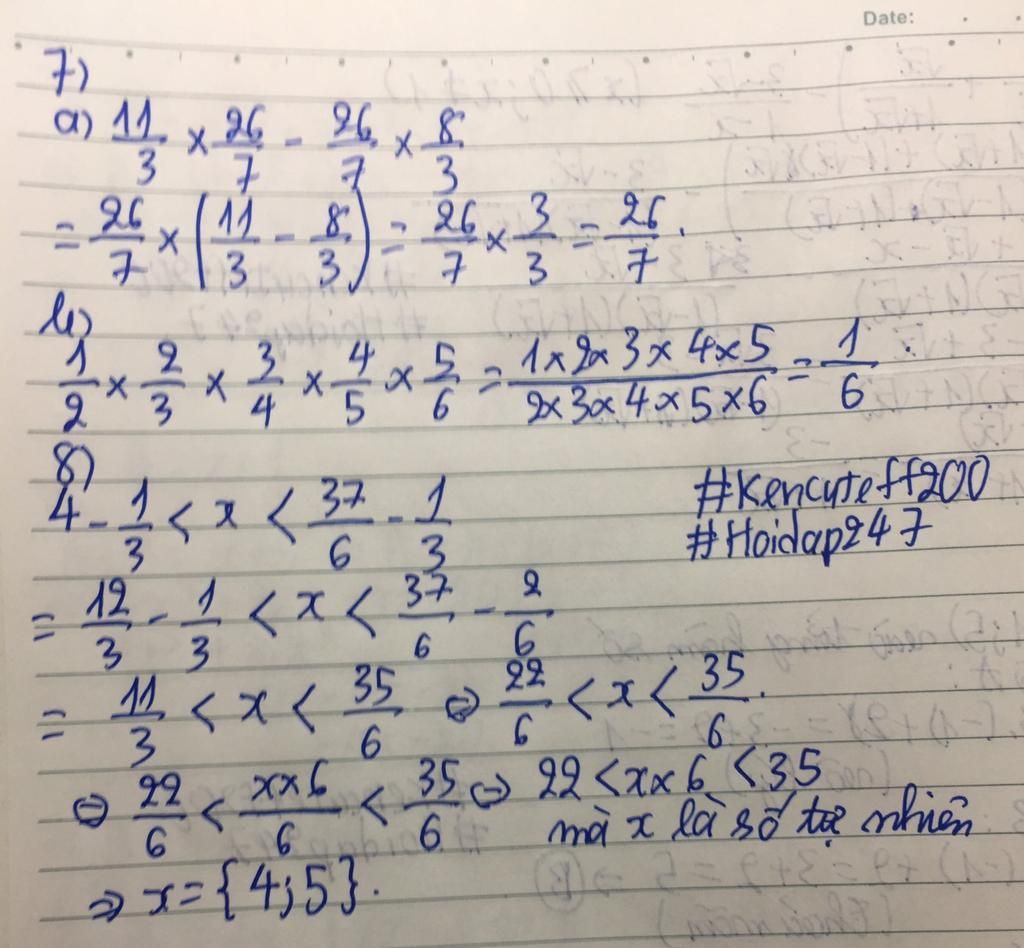 Date:
7)
a) 11/3 × 26/7 - 26/7 × 8/3
= 26/7 × (11/3 - 8/3) = 26/7 × 3/3 = 26/7.
b)
1/2 × 2/3 × 3/4 × 4/5 × 5/6 = 1×2×3×4×5/2×3×4×5×6 = 1/6.
8)
4 - 1/3 < x < 37/6 - 1/3
#Kencuteff200
#Hoidap247
= 12/3 - 1/3 < x < 37/6 - 2/6
= 11/3 < x < 35/6 ⇔ 22/6 < x < 35/6.
⇔ 22/6 < x×6/6 < 35/6 ⇔ 22 < x×6 < 35
mà x là số tự nhiên
⇒ x = {4;5}.